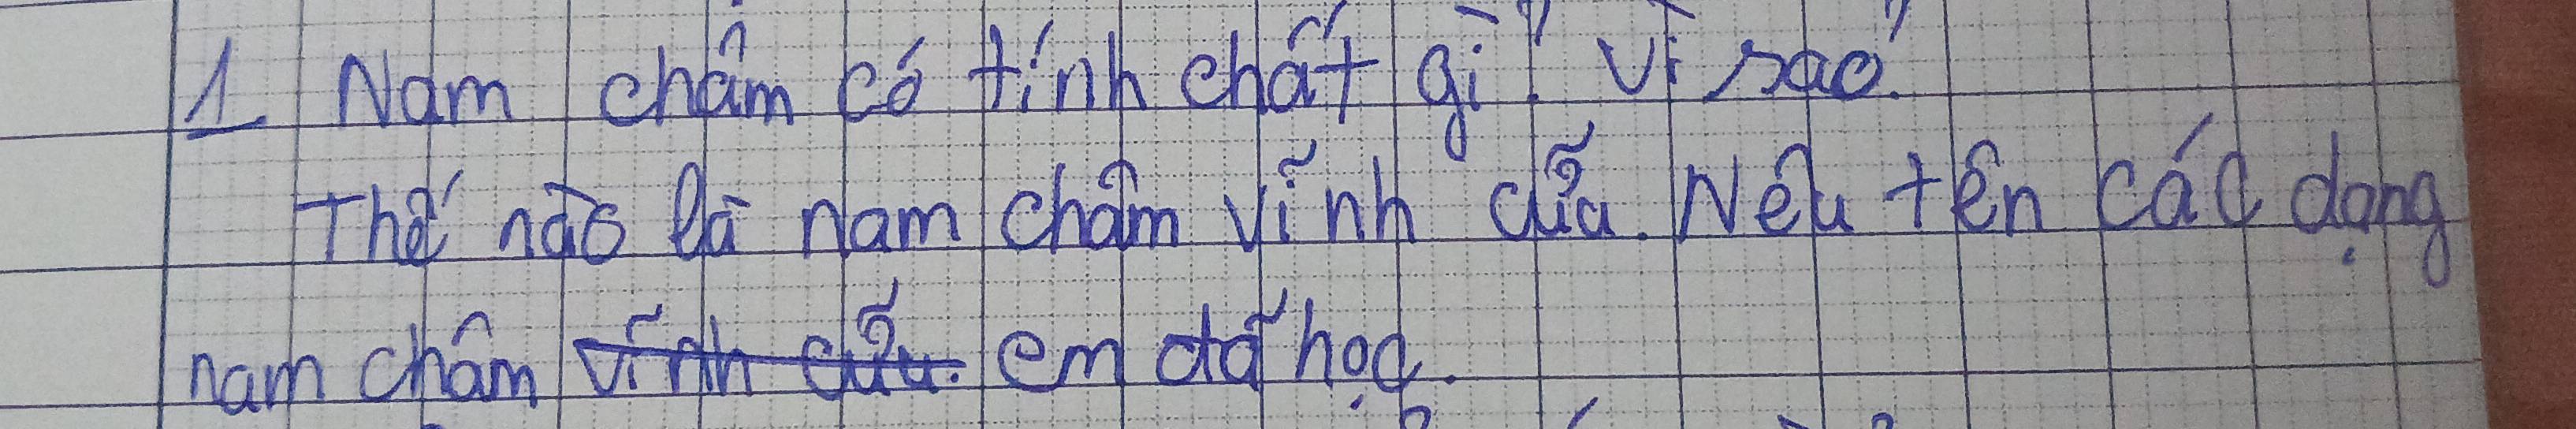 1 Nam châm có tính chất gì? Vì sao?
Thế nào là nam châm vĩnh cữu. Nêu tên các dạng
nam châm vĩnh cữu. em đã học.